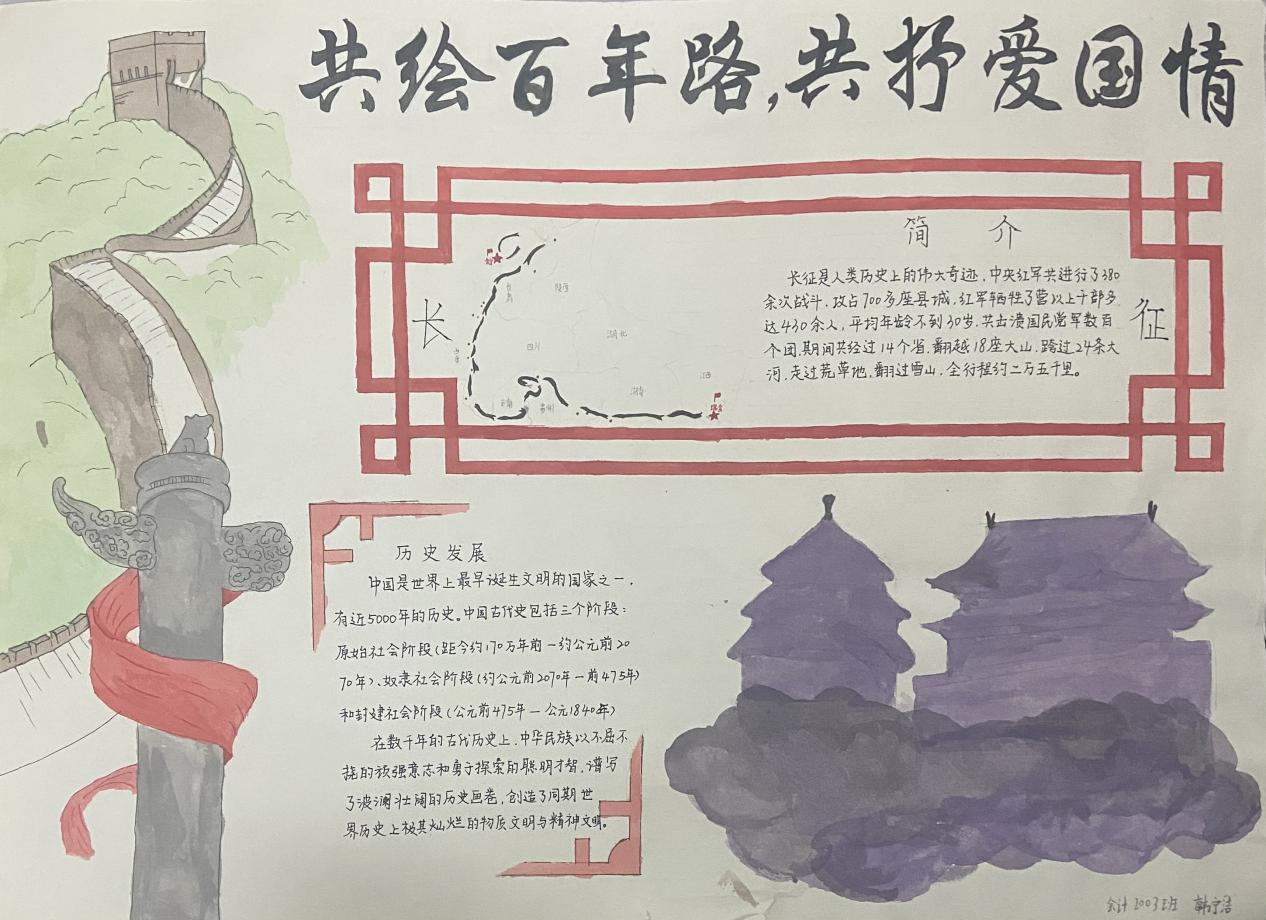 共绘百年路,共抒爱国情
简 介
长
征
长征是人类历史上的伟大奇迹,中央红军共进行了380
余次战斗,攻占700多座县城,红军牺牲了营以上干部多
达430余人,平均年龄不到30岁,共击溃国民党军数百
个团,期间共经过14个省,翻越18座大山,跨过24条大
河,走过荒草地,翻过雪山,全行程约二万五千里。
陕西
湖北
四川
江西
湖南
贵州
云南
历史发展
中国是世界上最早诞生文明的国家之一,
有近5000年的历史。中国古代史包括三个阶段:
原始社会阶段(距今约170万年前—约公元前20
70年)、奴隶社会阶段(约公元前2070年—前475年)
和封建社会阶段(公元前475年—公元1840年)
在数千年的古代历史上,中华民族以不屈不
挠的顽强意志和勇于探索的聪明才智,谱写
了波澜壮阔的历史画卷,创造了同期世
界历史上极其灿烂的物质文明与精神文明。
会计2003班